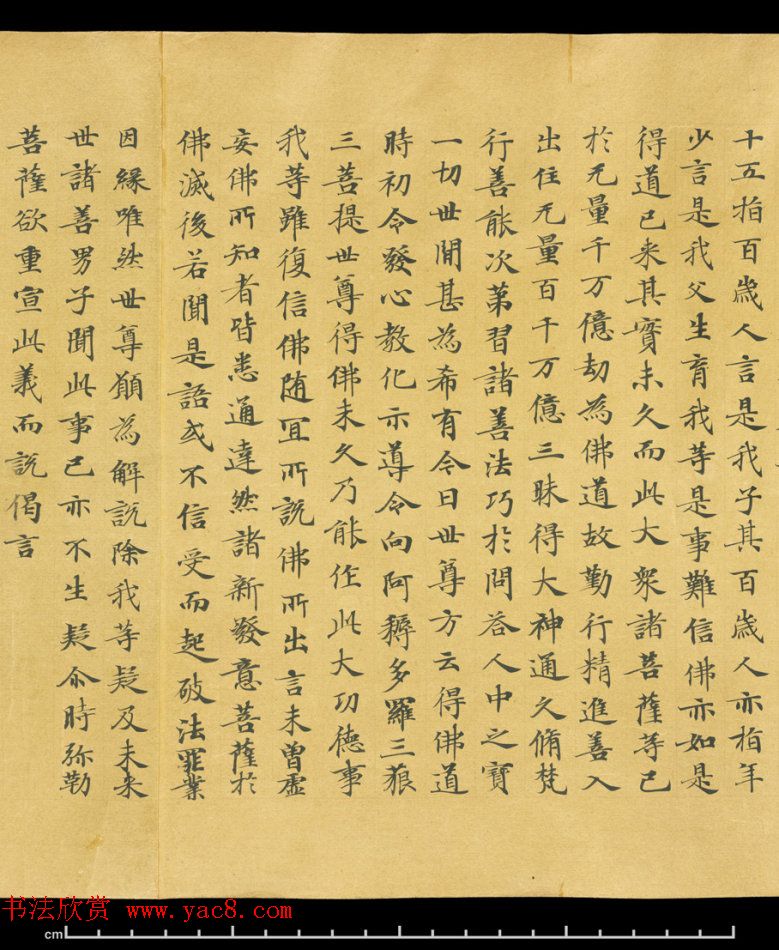 十五指百歲人言是我子其百歲人亦指年
少言是我父生育我等是事難信佛亦如是
得道已來其實未久而此大衆諸菩薩等已
於无量千万億劫為佛道故勤行精進善入
出住无量百千万億三昧得大神通久脩梵
行善能次苐習諸善法巧於問荅人中之寶
一切世間甚為希有今日世尊方云得佛道
時初令發心教化示導令向阿耨多羅三藐
三菩提世尊得佛未久乃能作此大功德事
我等雖復信佛随冝所說佛所出言未曾虛
妄佛所知者皆悉通達然諸新發意菩薩於
佛滅後若聞是語或不信受而起破法罪業
因緣唯然世尊願為解說除我等疑及未來
世諸善男子聞此事已亦不生疑尒時弥勒
菩薩欲重宣此義而說偈言
书法欣赏 www.yac8.com
cm